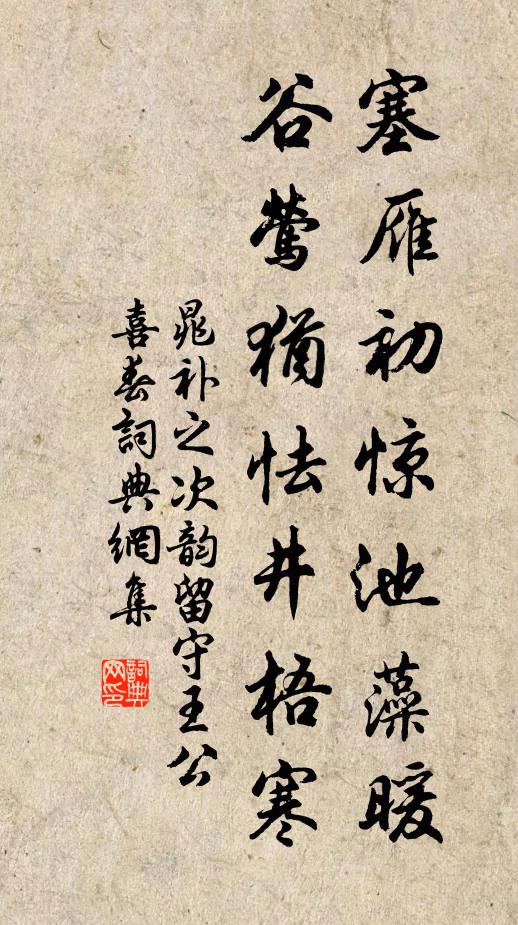 塞雁初惊池藻暖
谷莺犹怯井梧寒
晁补之次韵留守王公
喜春詞典網集
詞典
网印